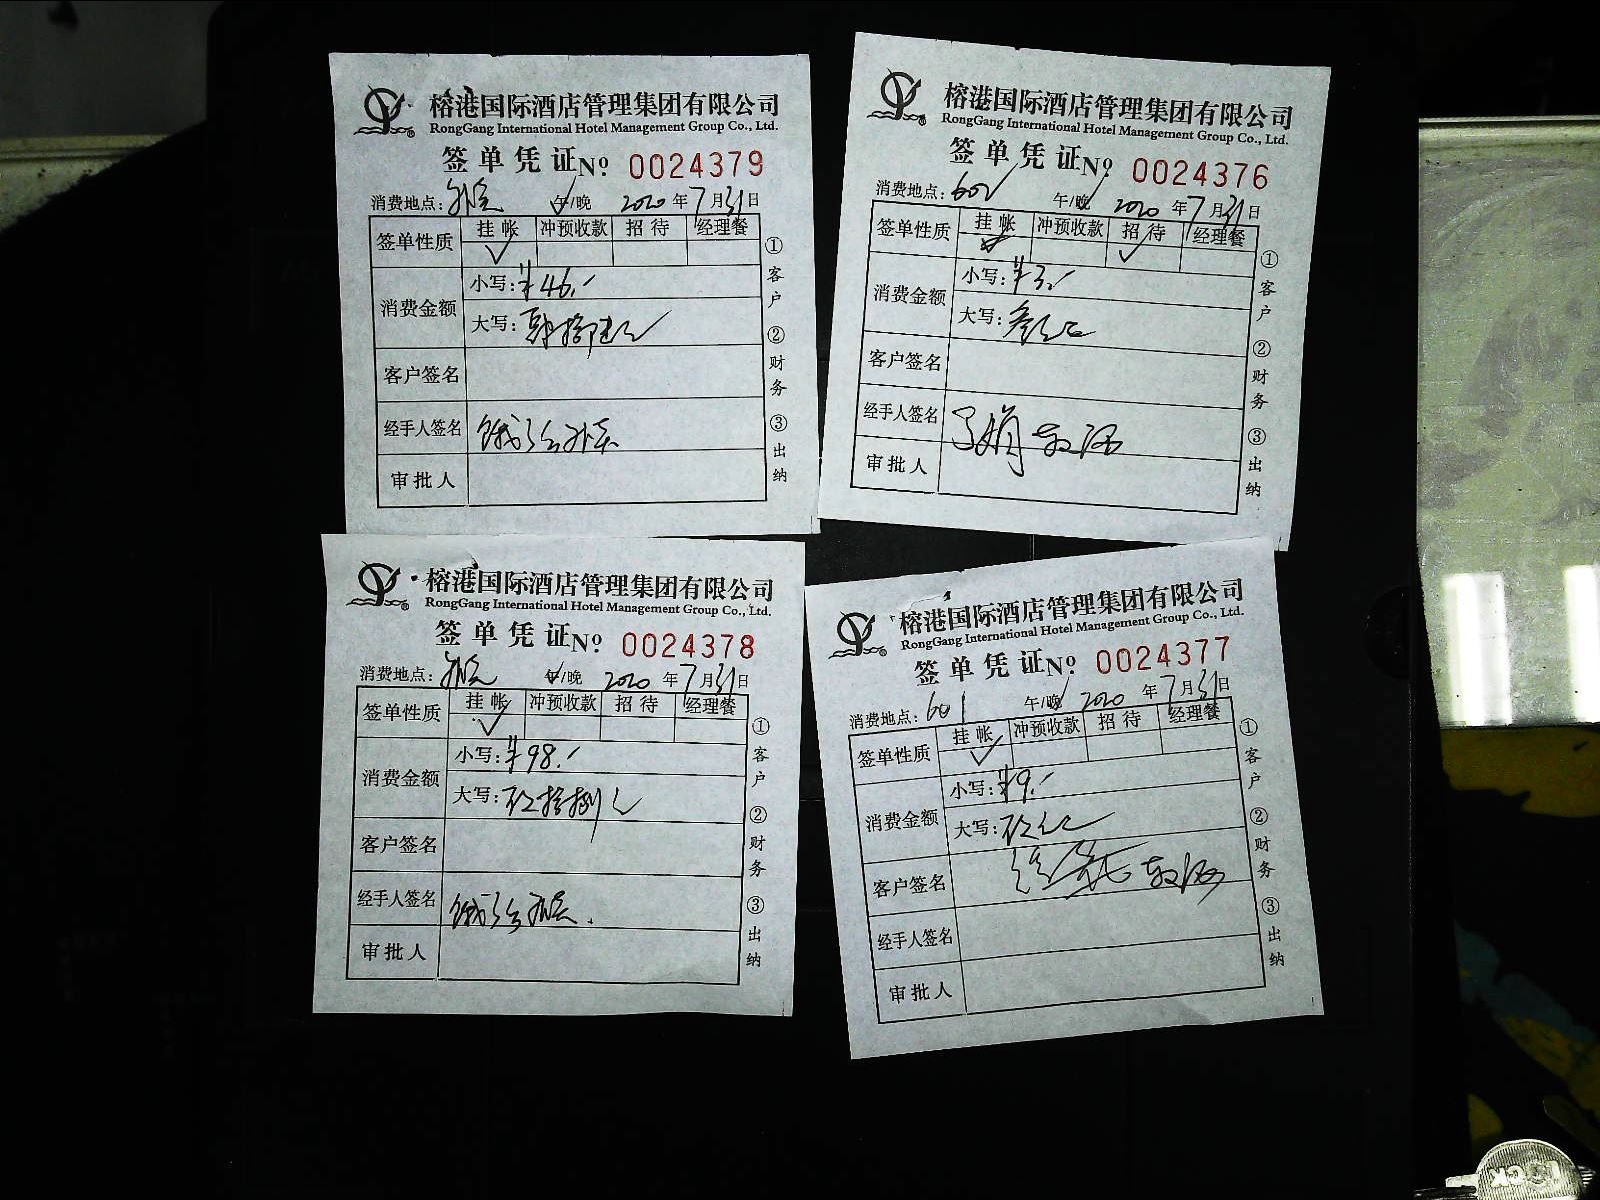 榕港国际酒店管理集团有限公司
RongGang International Hotel Management Group Co., Ltd.
签单凭证 No. 0024379
消费地点: 午/晚 2020年7月31日
签单性质 挂帐 冲预收款 招待 经理餐
✓
消费金额 小写: ¥46.-
大写: 肆拾陆元
客户签名
经手人签名
审批人
①客户 ②财务 ③出纳
榕港国际酒店管理集团有限公司
RongGang International Hotel Management Group Co., Ltd.
签单凭证 No. 0024376
消费地点: 602 午/晚 2020年7月31日
签单性质 挂帐 冲预收款 招待 经理餐
✓
消费金额 小写: ¥3.-
大写: 叁元
客户签名
经手人签名
审批人
①客户 ②财务 ③出纳
榕港国际酒店管理集团有限公司
RongGang International Hotel Management Group Co., Ltd.
签单凭证 No. 0024378
消费地点: 午/晚 2020年7月31日
签单性质 挂帐 冲预收款 招待 经理餐
✓
消费金额 小写: ¥98.-
大写: 玖拾捌元
客户签名
经手人签名
审批人
①客户 ②财务 ③出纳
榕港国际酒店管理集团有限公司
RongGang International Hotel Management Group Co., Ltd.
签单凭证 No. 0024377
消费地点: 601 午/晚 2020年7月31日
签单性质 挂帐 冲预收款 招待 经理餐
✓
消费金额 小写: ¥9.-
大写: 玖元
客户签名
经手人签名
审批人
①客户 ②财务 ③出纳